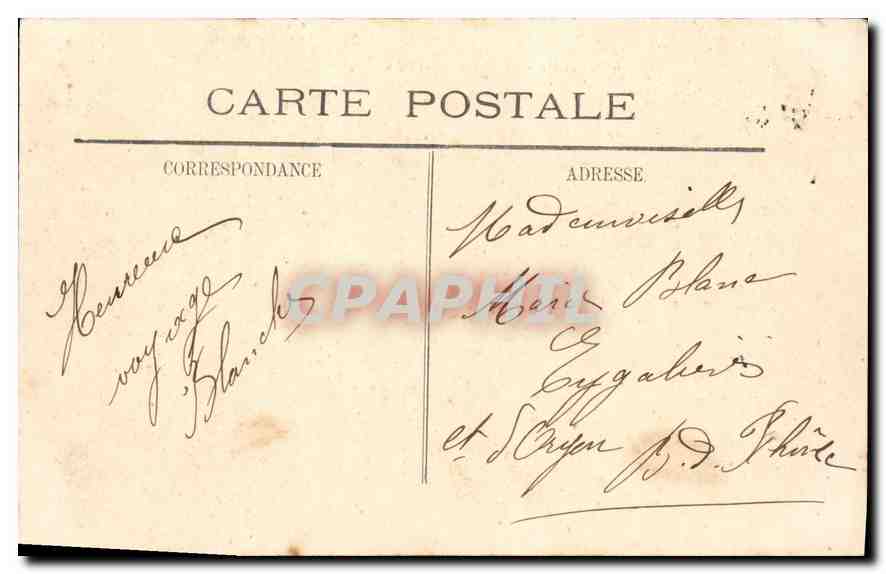 CARTE POSTALE
CORRESPONDANCE
ADRESSE
Heureux
voyage
Blanche
CPAPHIL
Mademoiselle
Marie Blanc
Eygalières
et d'Orgon B. d. Rhône